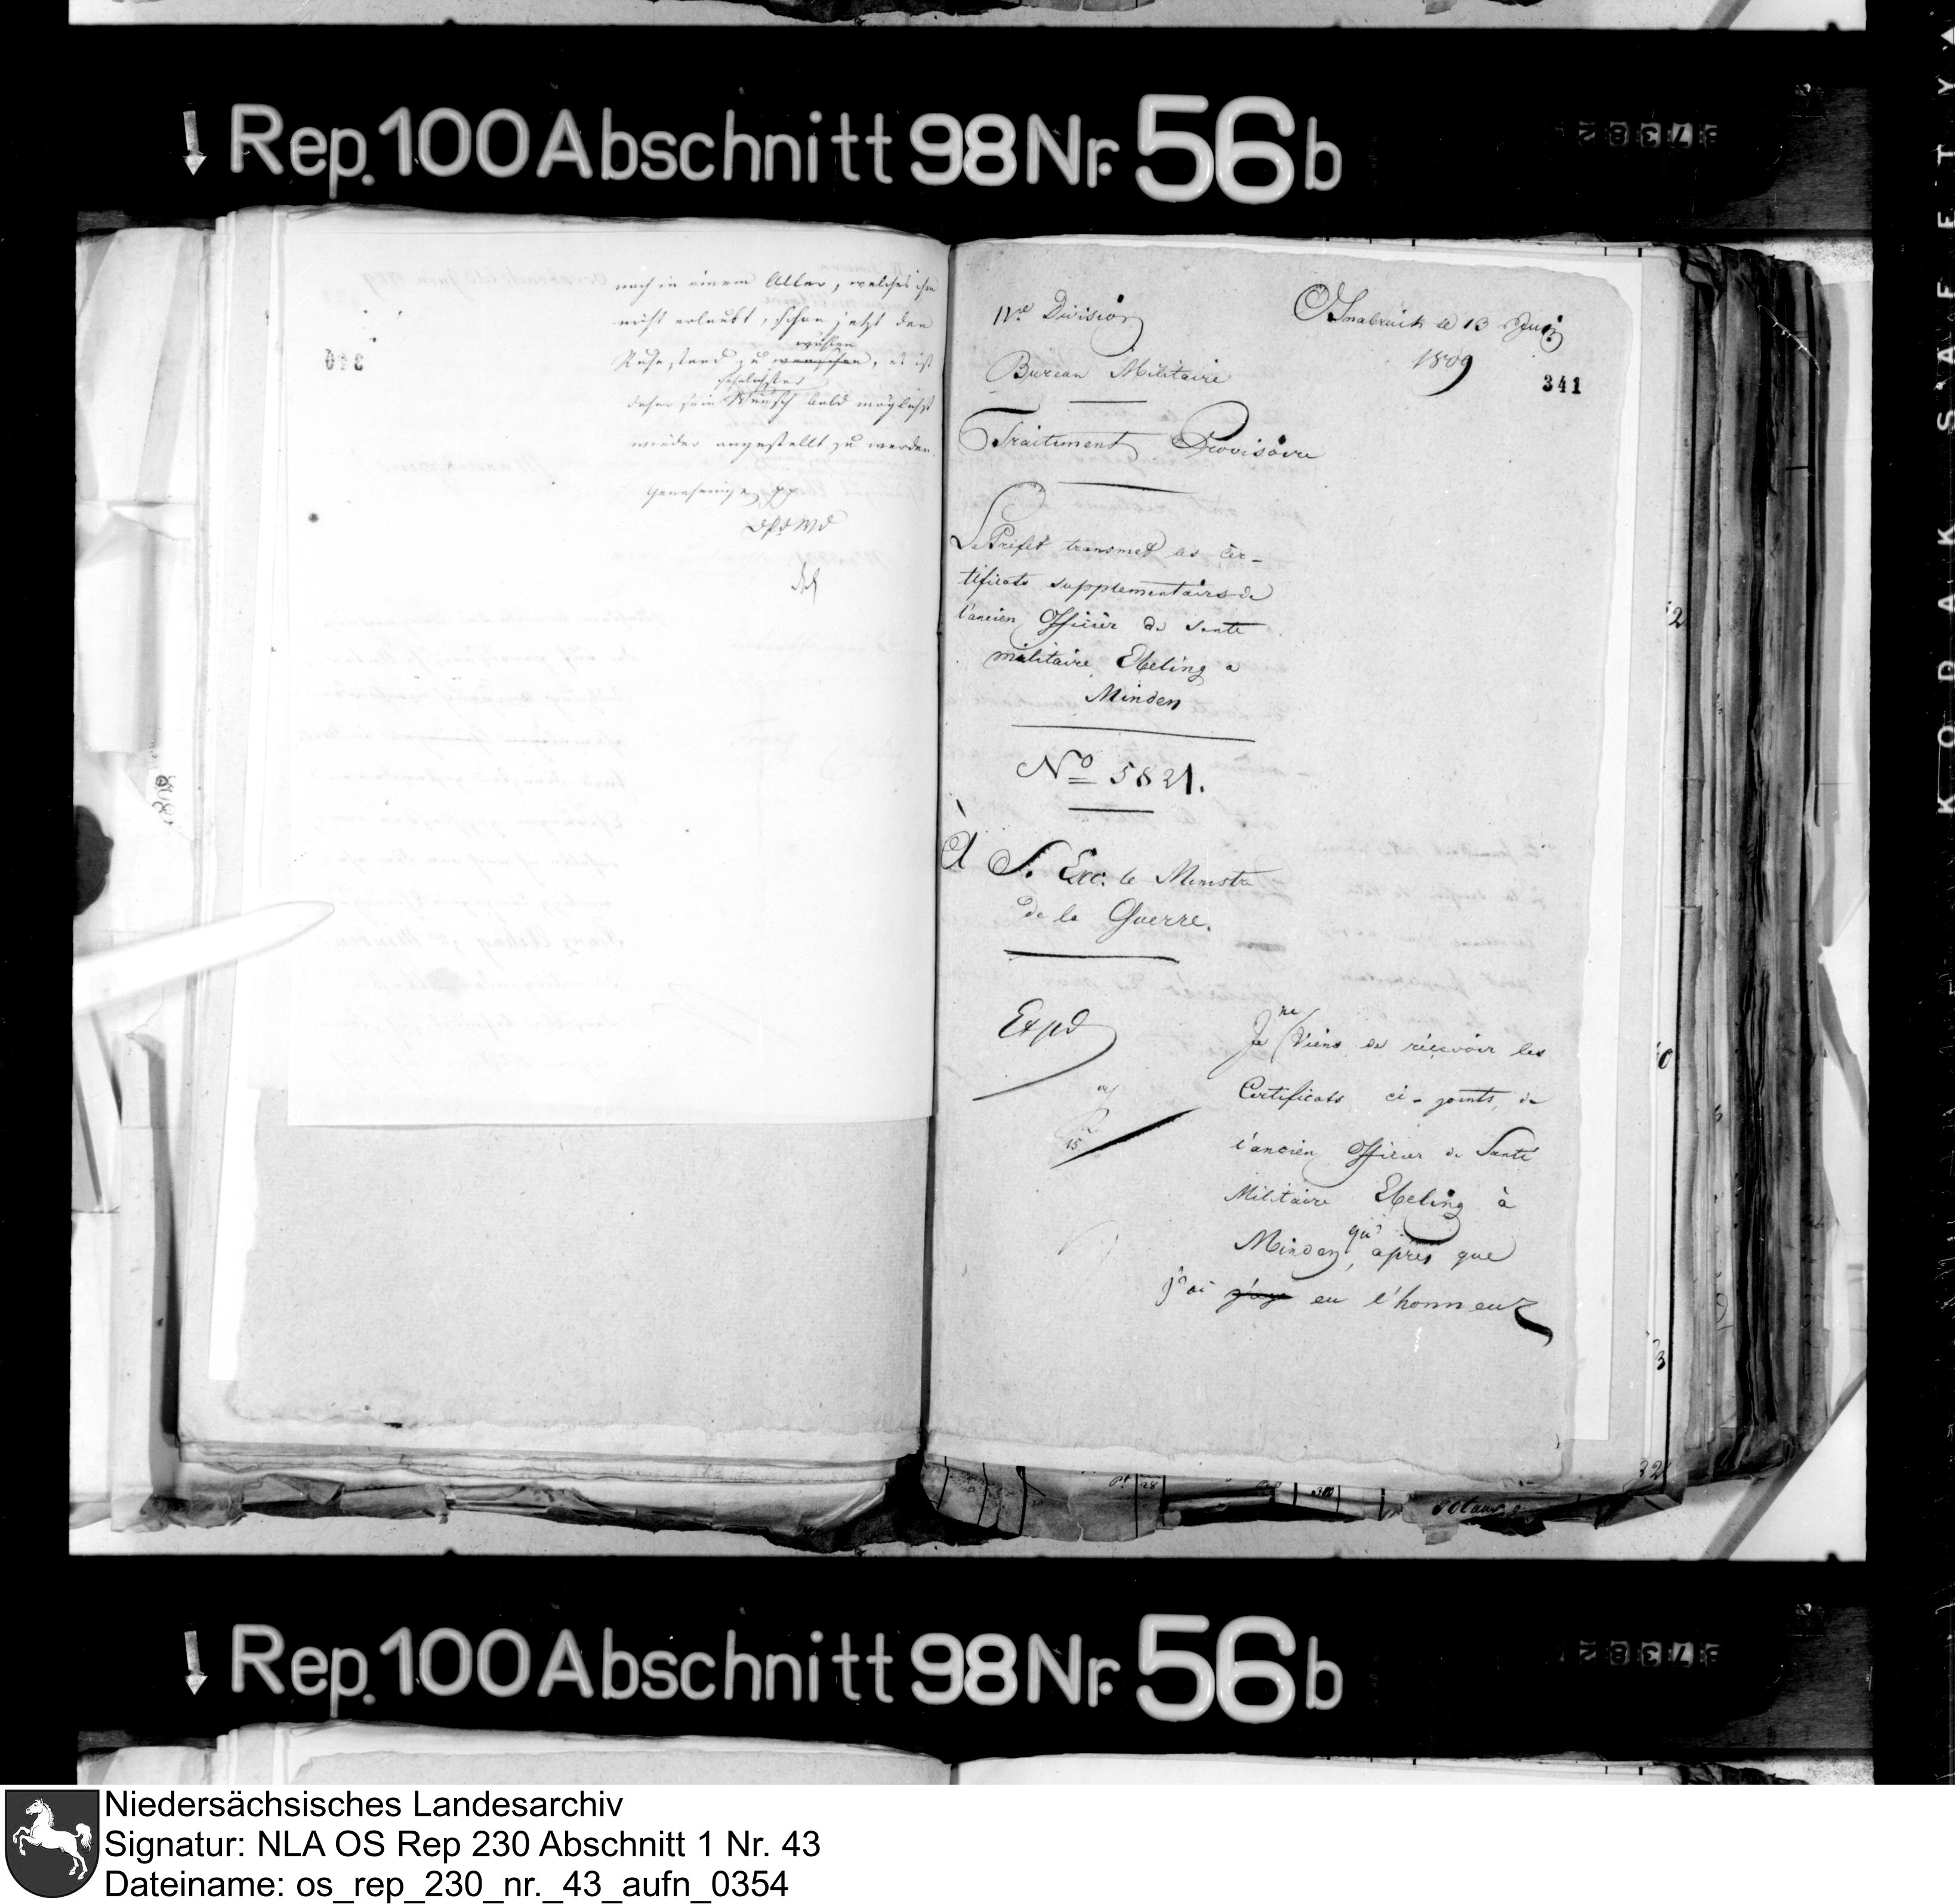 Rep. 100 Abschnitt 98 Nr. 56 b
noch in einem Alter, welches ihm
nicht erlaubt, schon jetzt den
wählen
Ruhestand zu wünschen, es ist
sehnlichster
daher sein Wunsch bald möglichst
wieder angestellt zu werden.
Genehmigen pp
340
IVe Division
Bureau Militaire
Osnabruck le 13 Juin
1809
341
Traitement Provisoire
Le Prefet transmet les Cer-
tificats supplementaires de
l'ancien Officier de Sante
militaire Ebeling a
Minden
No 5821.
À S. Exc: le Ministre
de la Guerre.
Expd
15
Je viens de reçevoir les
Certificats ci-joints, de
l'ancien Officier de Santé
Militaire Ebeling à
Minden, qu' après que
j'ai j'aye eu l'honneur
Rep. 100 Abschnitt 98 Nr. 56 b
KODAK SAFETY
Niedersächsisches Landesarchiv
Signatur: NLA OS Rep 230 Abschnitt 1 Nr. 43
Dateiname: os_rep_230_nr._43_aufn_0354